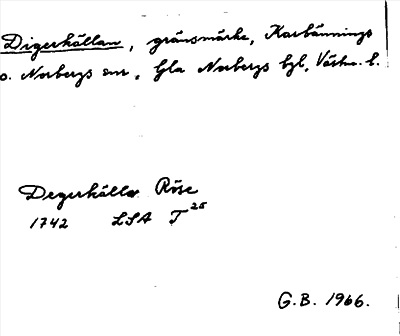 Digerkällan, gränsmärke, Karbännings
o. Norbergs snr, Gla Norbergs bgl, Västm. l.
Degerkälla Röse
1742 LSA T 25
G.B. 1966.